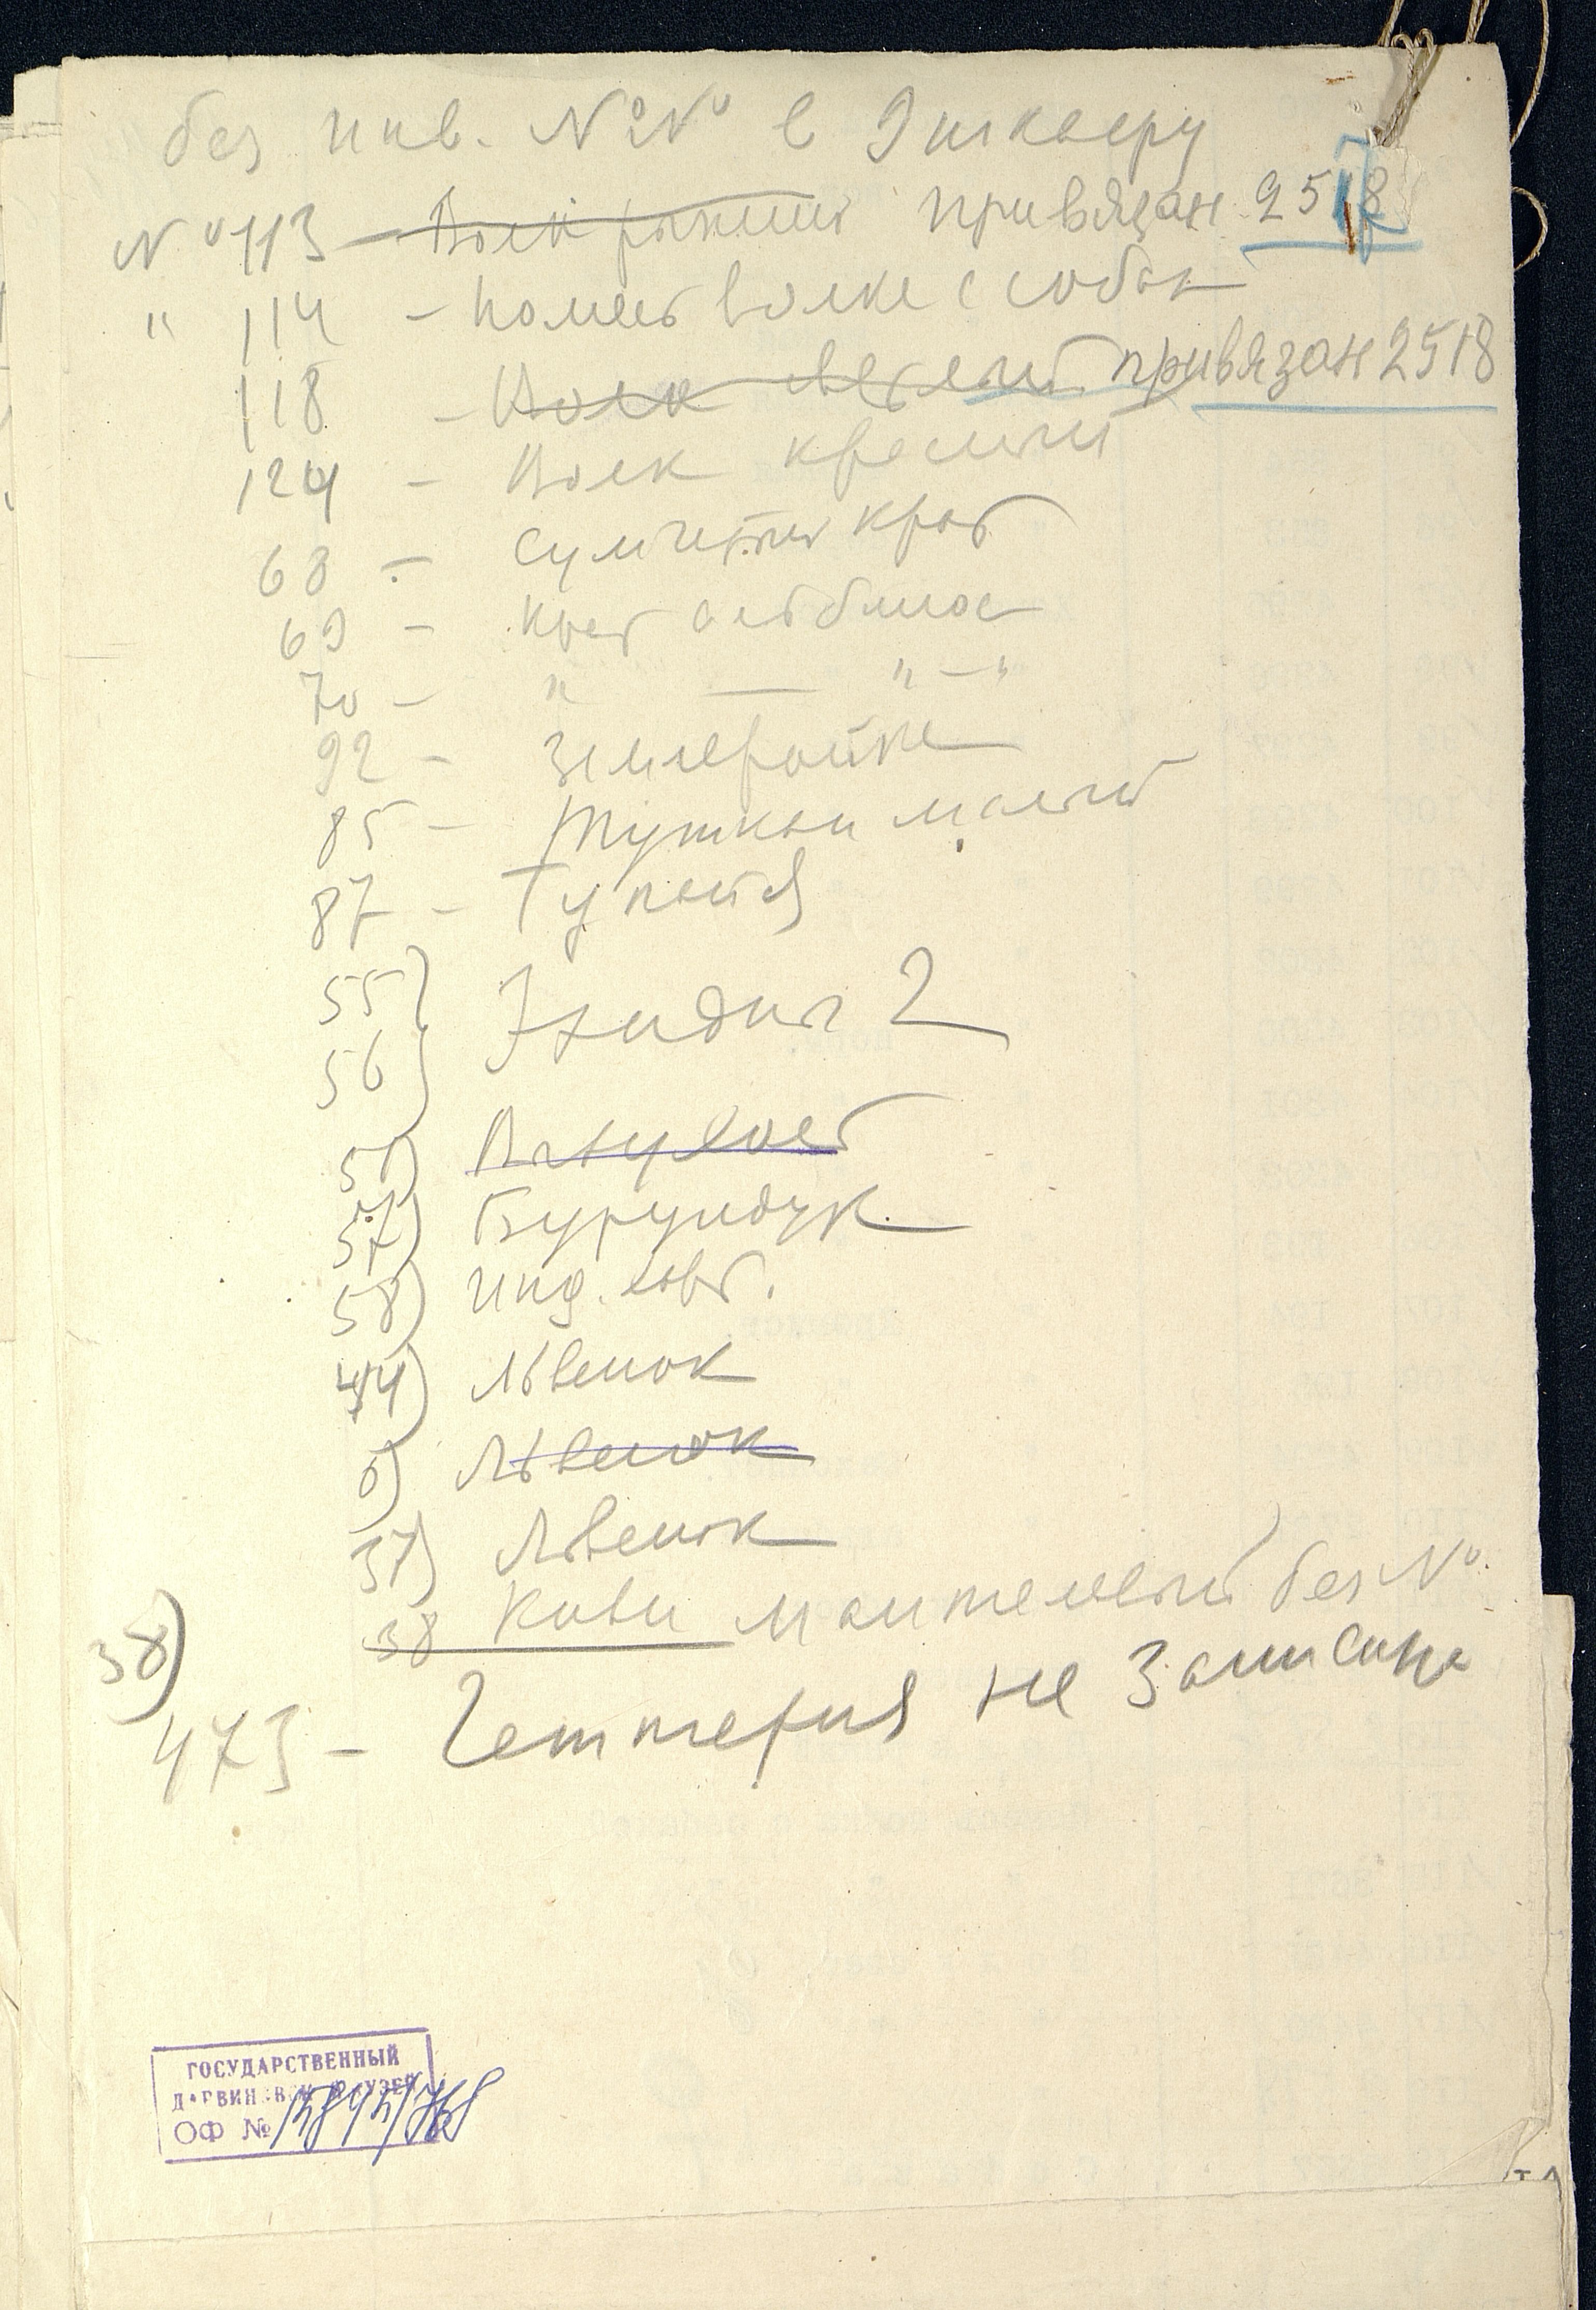 без инв. №№ в
№ 113 — Волк рыжий привязан 2518
" 114 - помесь волка с собак
118 - Волк светлый привязан 2518
124 - Волк красный
68 - Сумчатый крот
69 - Крот альбинос
70 - " — " — "
92 - Землеройка
85 - Тушкан малый
87 - Тупайя
55)
56) Ехидны 2
51) Выхухоль
57) Бурундук
58) инд.
44) Львенок
6) Львенок
37) Львенок
38 Киви мантелевый без №
38)
473 - Гаттерия не записана
ГОСУДАРСТВЕННЫЙ
ДАРВИНОВСКИЙ МУЗЕЙ
ОФ №